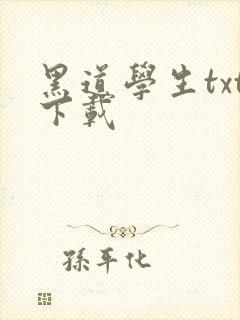 黑道學生txt
下載
孫平化